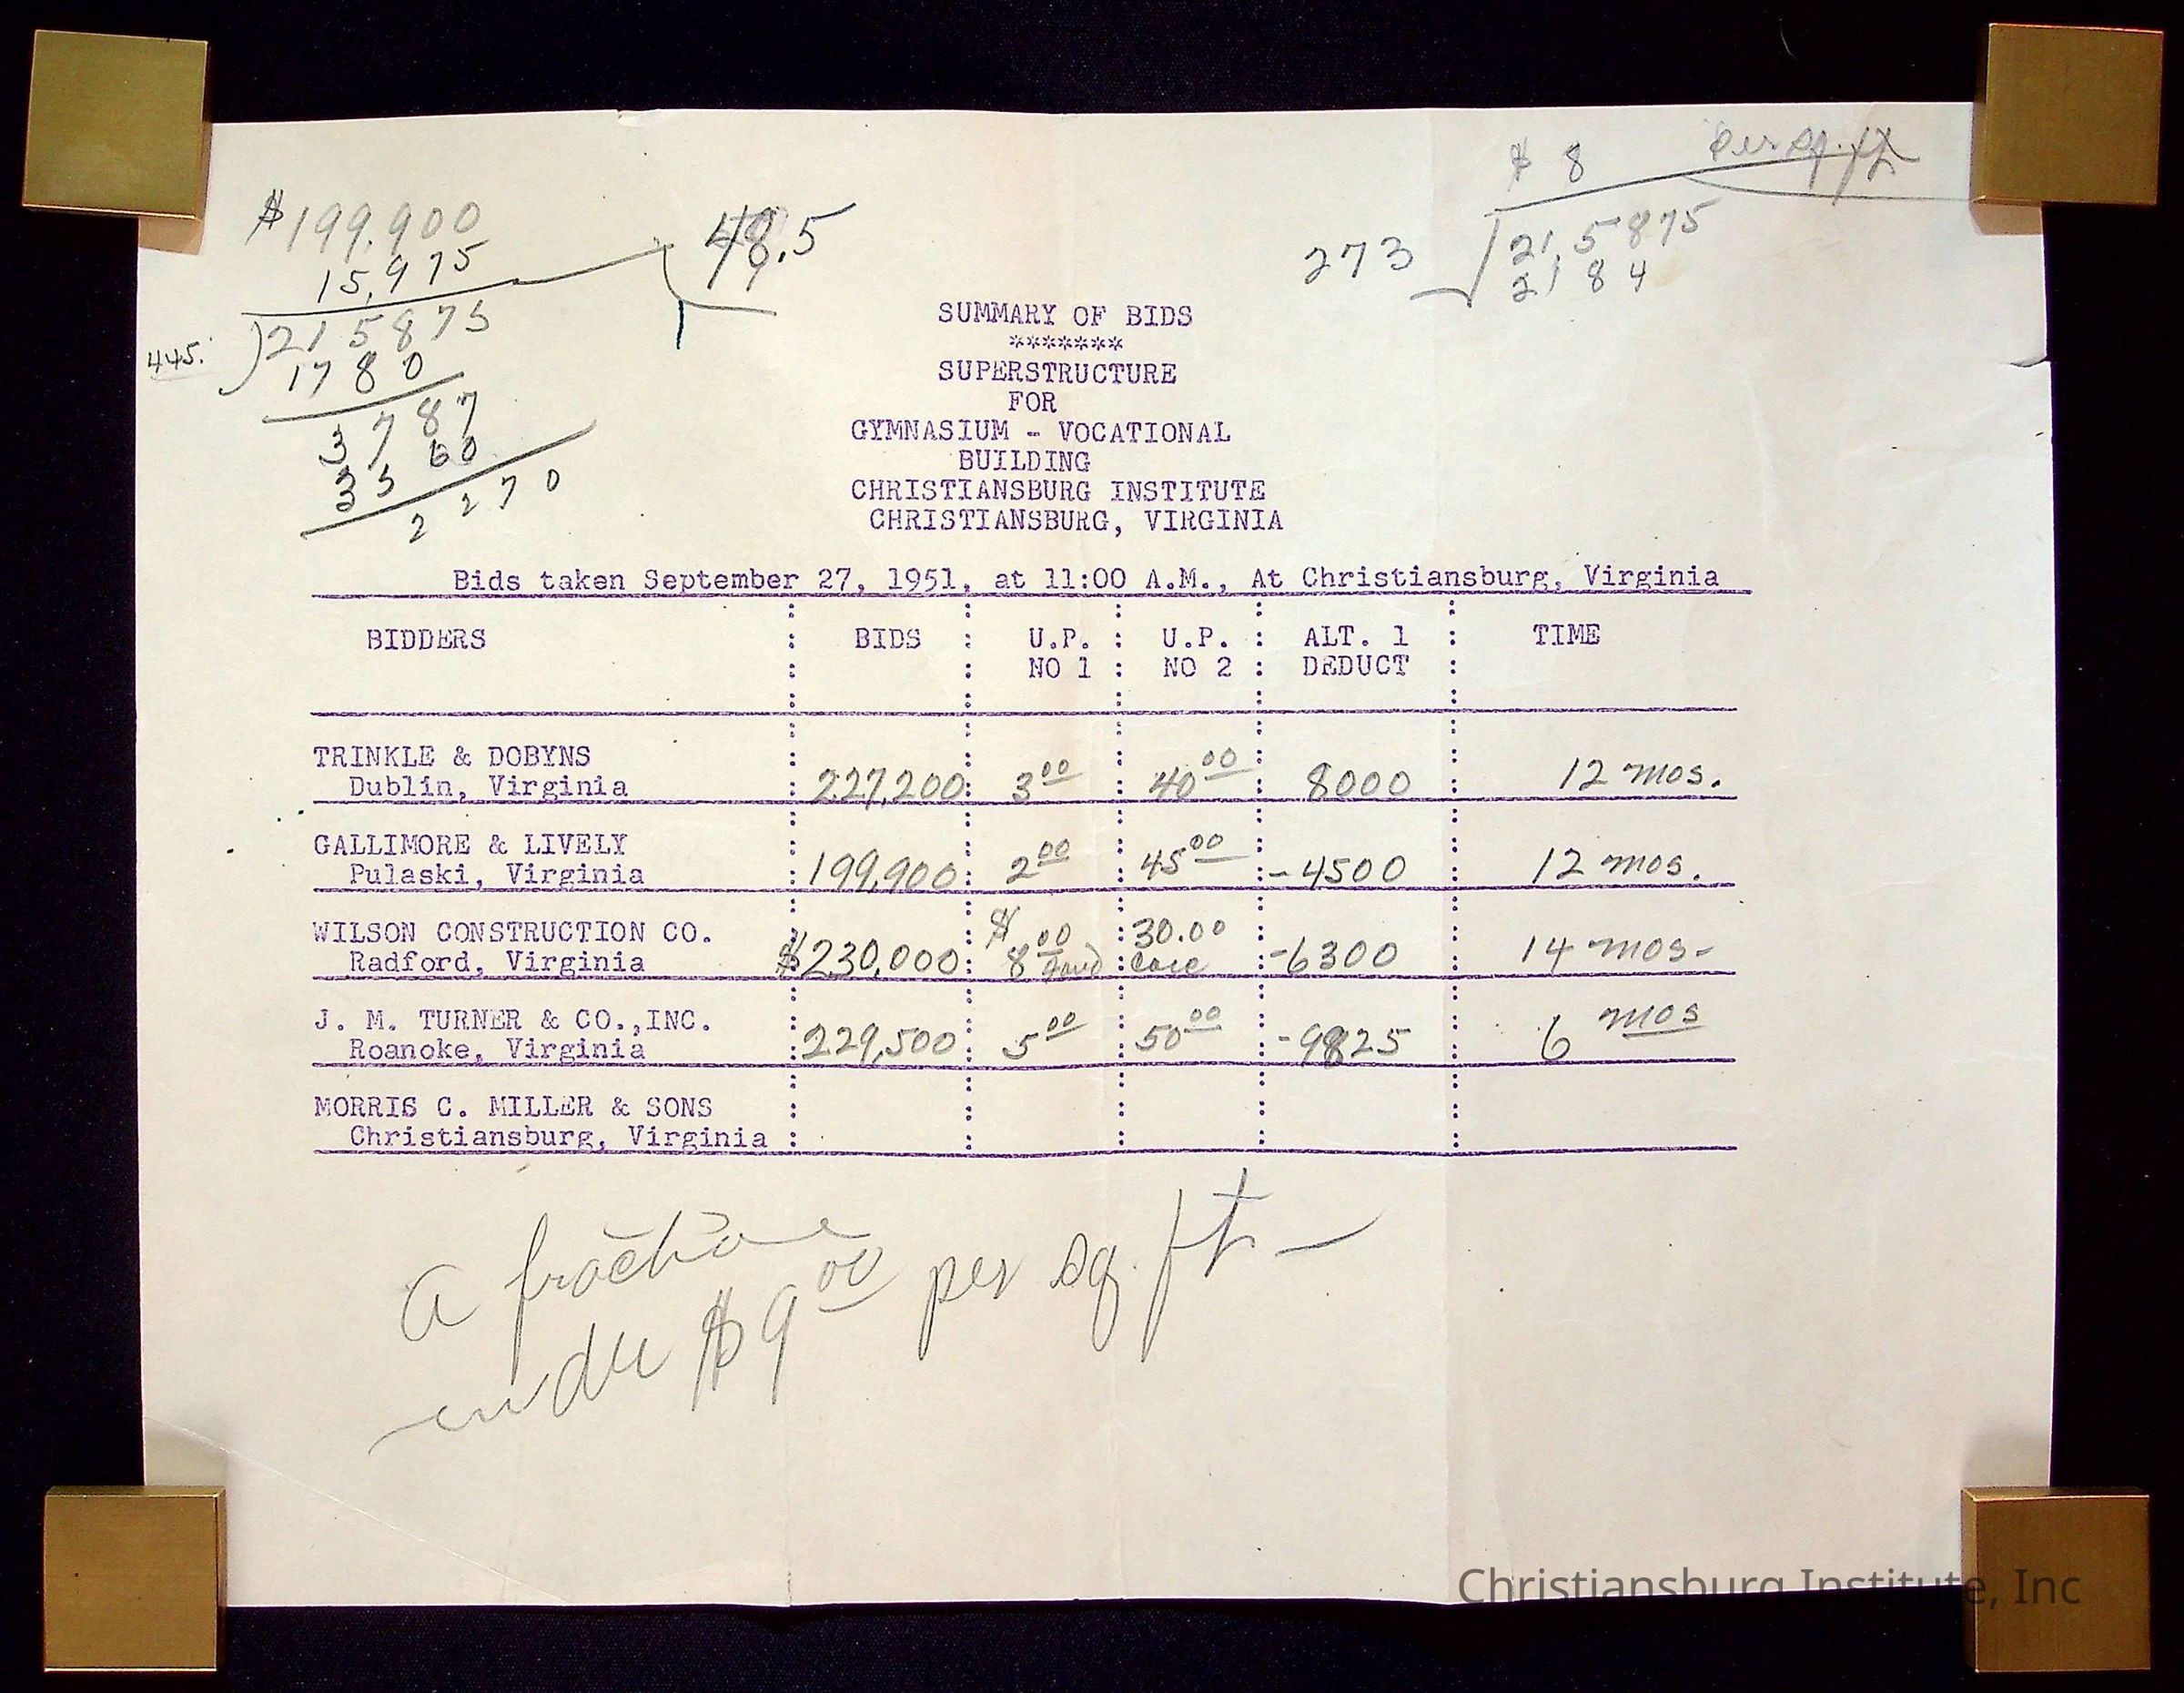 $ 8 per sq. ft
$199,900
15,975
48.5
273 21,5875
2184
445. 215875
1780
3787
3560
2270
SUMMARY OF BIDS
*******
SUPERSTRUCTURE
FOR
GYMNASIUM - VOCATIONAL
BUILDING
CHRISTIANSBURG INSTITUTE
CHRISTIANSBURG, VIRGINIA
Bids taken September 27, 1951, at 11:00 A.M., At Christiansburg, Virginia
BIDDERS : BIDS : U.P. : U.P. : ALT. 1 : TIME
NO 1 : NO 2 : DEDUCT :
TRINKLE & DOBYNS
Dublin, Virginia : 227,200: 3 00 : 40 00 : 8000 : 12 mos.
GALLIMORE & LIVELY
Pulaski, Virginia : 199,900: 2 00 : 45 00 : -4500 : 12 mos.
WILSON CONSTRUCTION CO. $ : 30.00
Radford, Virginia $230,000: 8 00 : : -6300 : 14 mos-
J. M. TURNER & CO.,INC.
Roanoke, Virginia : 229,500: 5 00 : 50 00 : -9825 : 6 mos
MORRIS C. MILLER & SONS
Christiansburg, Virginia :
a fraction
under $9 00 per sq. ft-
Christiansburg Institute, Inc